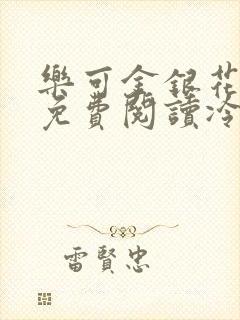 樂可金銀花
免費閱讀冷
雷賢忠